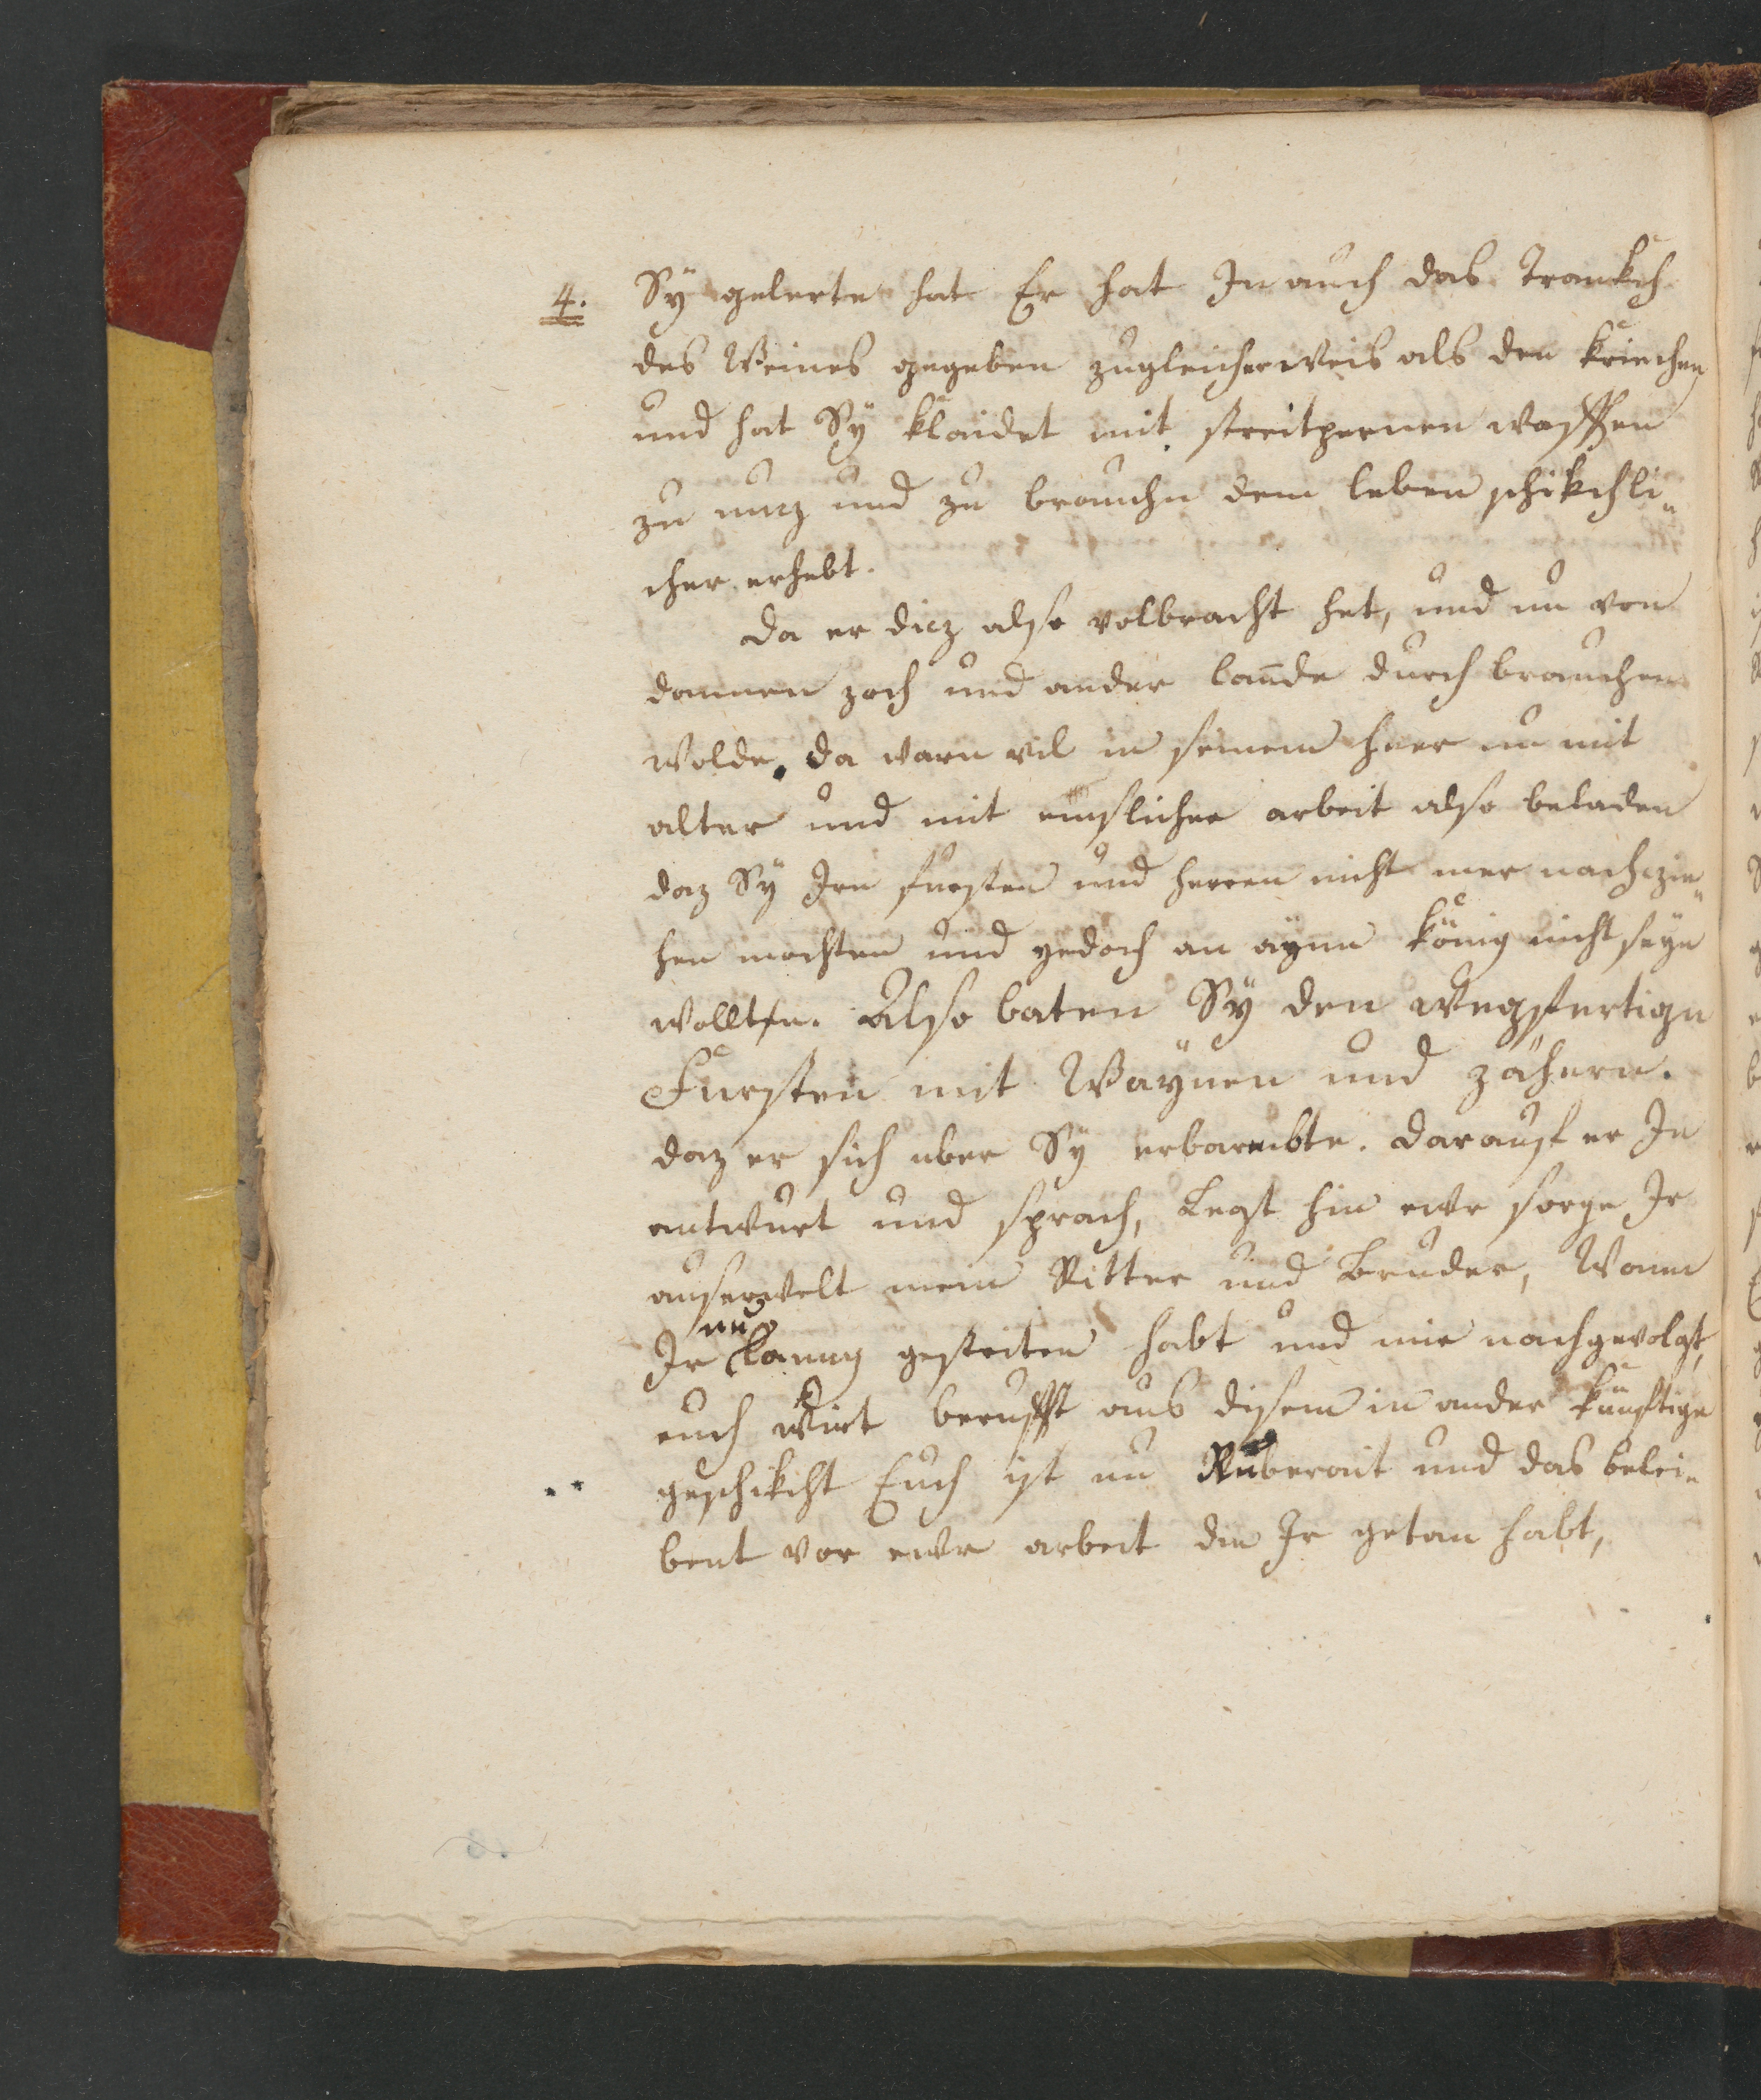 4. Sÿ gelerte hat Er hat In auch das Trankch
des Weines gegeben zugleicherweis als den kriechen
und hat Sÿ klaidet mit streitpernen waffen
zu nucz und zu brauchn dem leben schikchli„
cher erhebt.
Da er dicz also volbracht het, und nu von
dannen zoch und ander lannde durch brauchen
wolde. da warn vil in seinem heer nu mit
alter und mit emslicher arbeit also beladen
daz Sÿ Irn fursten und herren nicht mer nachczie„
hen mochten und yedoch an aÿnn König nicht seÿn
wollten. Also baten Sÿ den wegfertign
Fursten mit Waÿnen und zähern.
daz er sich uber Sÿ erbarmbte. darauf er In
antwurt und sprach, Legt hin ewr sorge Ir
auserwelt mein Ritter und Bruder, Wann
Ir nu lanng gestriten habt und mir nachgevolgt,
euch wirt berufft aus disem in ander künftige
geschikcht Euch ist nu Ru berait und das belei„
bent vor ewr arbeit die Ir getan habt,